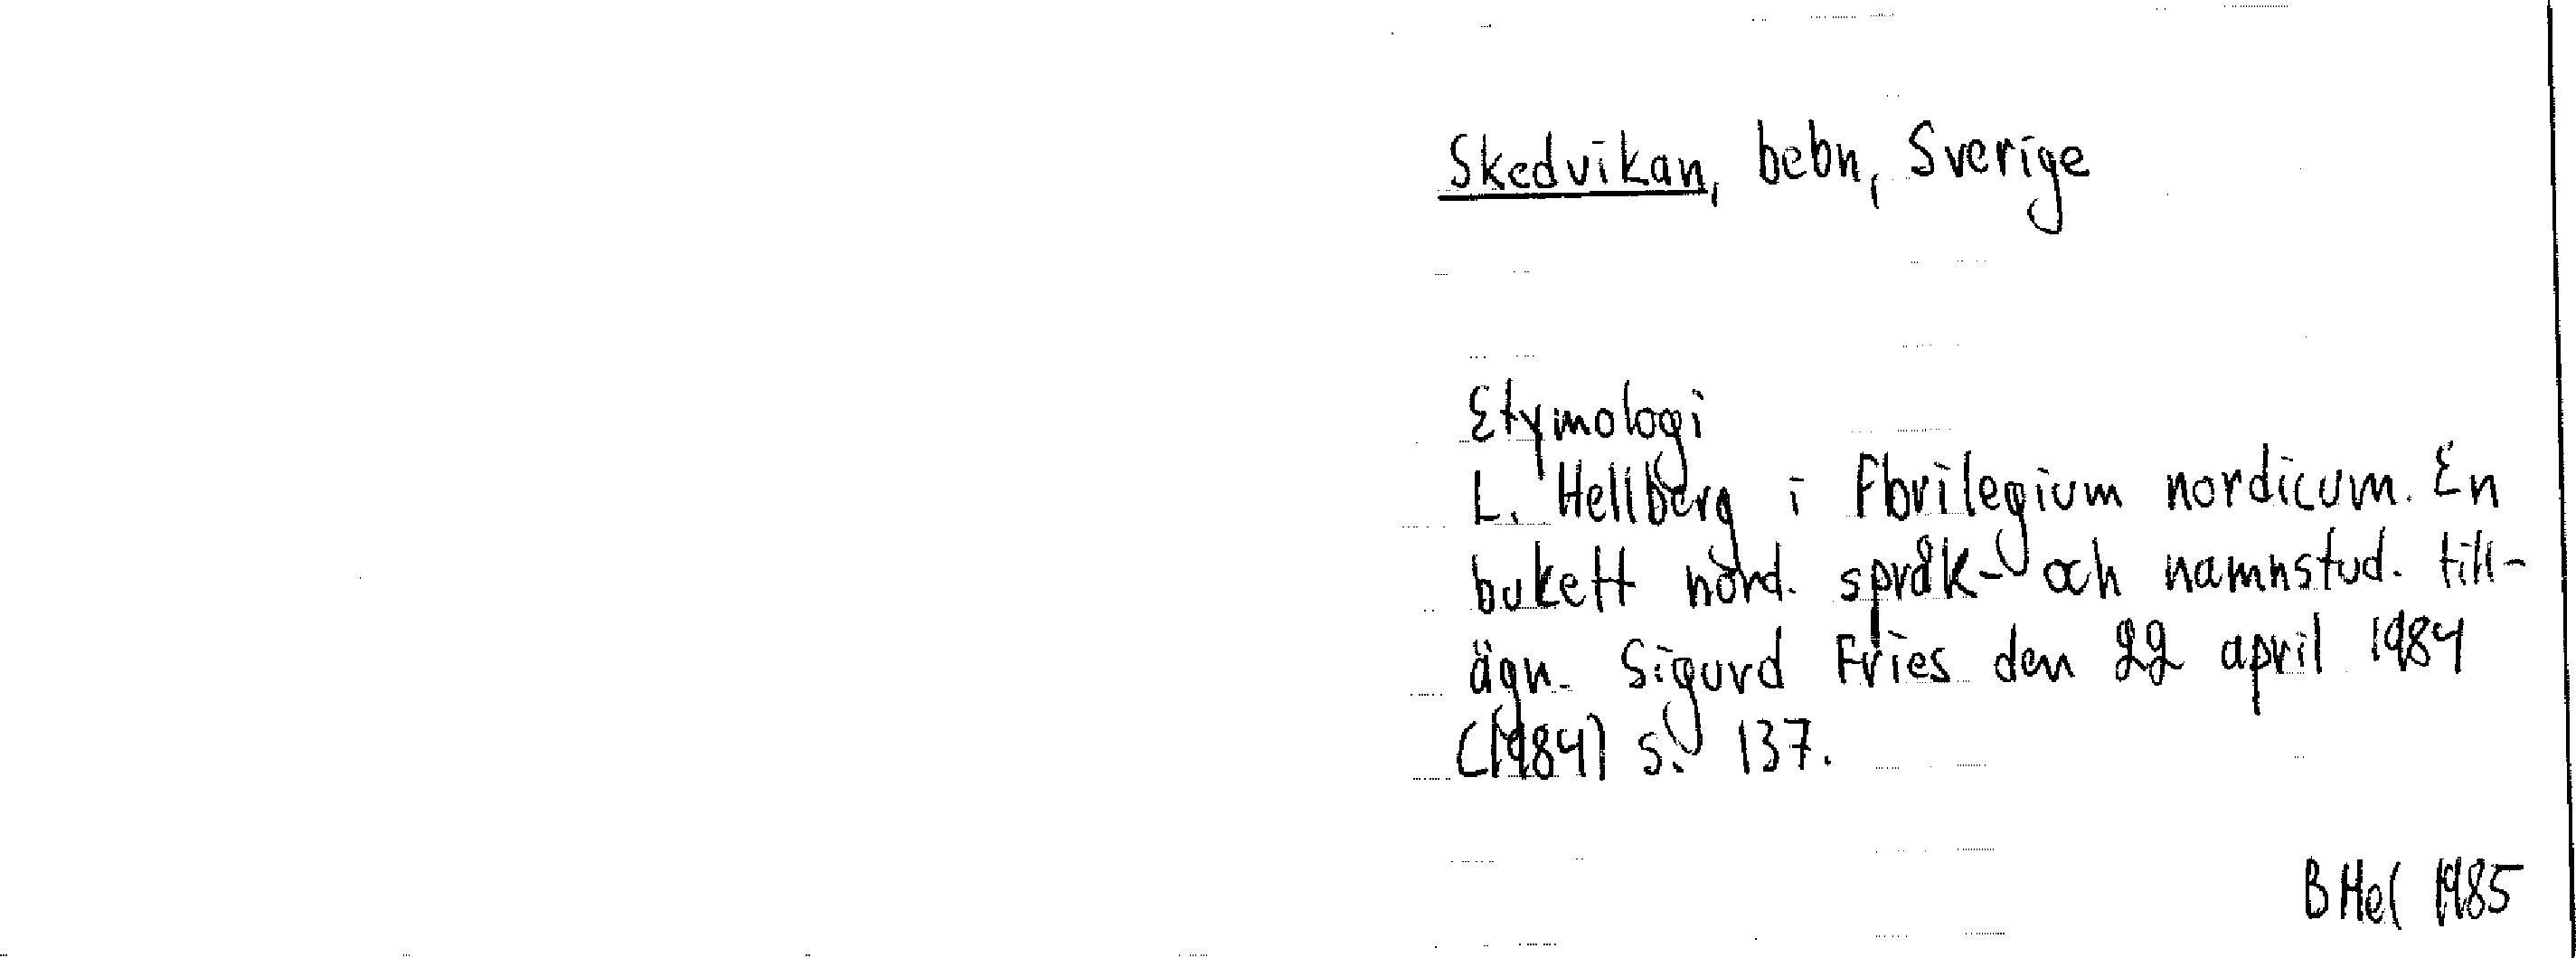 Skedvikan, bebn, Sverige
Etymologi
L. Hellberg i Florilegium nordicum. En
bukett nord. språk- och namnstud. till-
ägn. Sigurd Fries den 22 april 1984
(1984) s. 137.
B Hel 1985